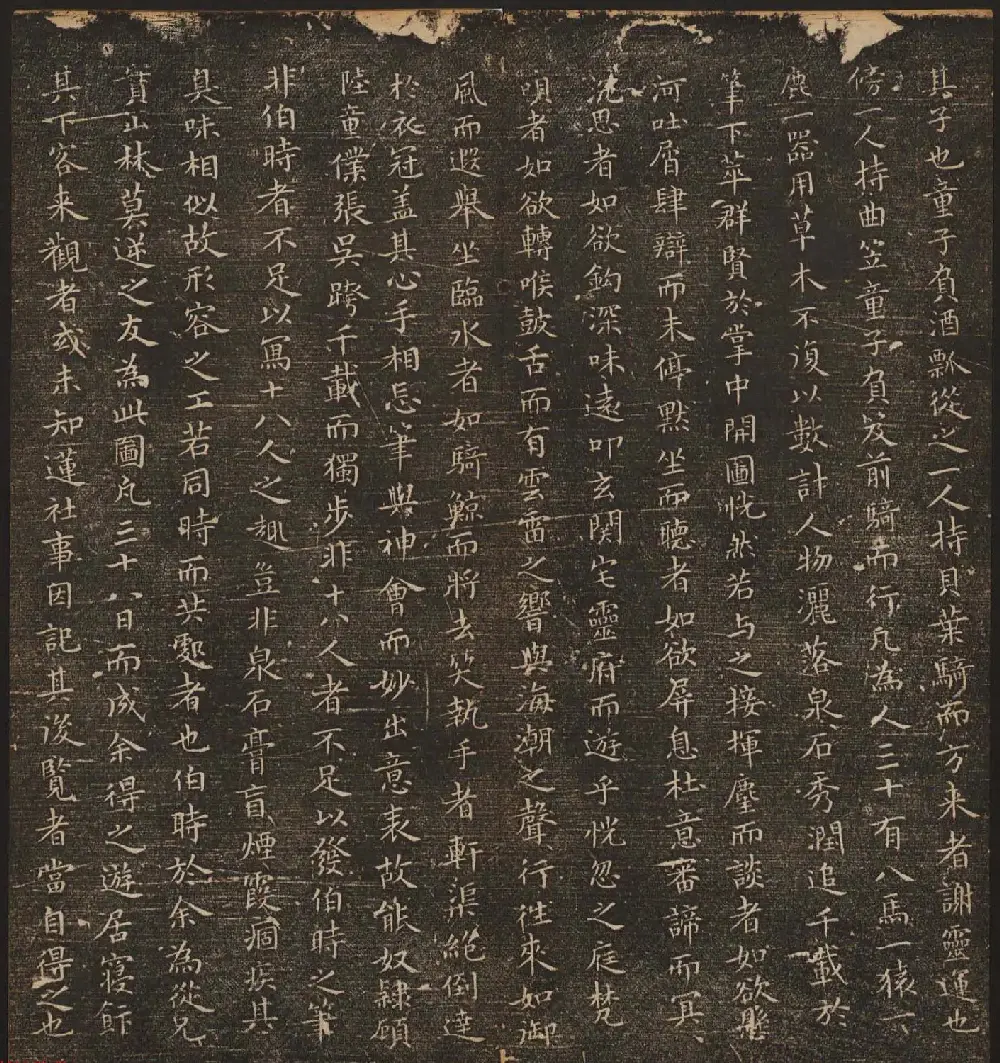 其子也童子負酒瓢從之一人持貝葉騎而方来者謝靈運也
傍一人持曲笠童子負笈前騎而行凡為人三十有八馬一猿一
鹿一器用草木不復以數計人物灑落泉石秀潤追千載於
筆下萃群賢於掌中開圖恍然若与之接揮麈而談者如欲懸
河吐屑肆辯而未停默坐而聽者如欲屏息杜意審諦而冥
沉思者如欲鈎深味遠叩玄関宅靈府而遊乎恍忽之庭梵
唄者如欲轉喉鼓舌而有雲雷之響與海潮之聲行徃來如御
風而遐舉坐臨水者如騎鯨而將去笑執手者軒渠絕倒達
於衣冠盖其心手相忘筆與神會而妙出意表故能奴隸顧
陸童僕張吳跨千載而獨步非十八人者不足以發伯時之筆
非伯時者不足以寫十八人之趣豈非泉石膏肓煙霞痼疾其
臭味相似故形容之工若同時而共處者也伯時於余為從兄
實山林莫逆之友為此圖凡三十八日而成余得之遊居寢飰
其下客来觀者或未知蓮社事因記其後覽者當自得之也